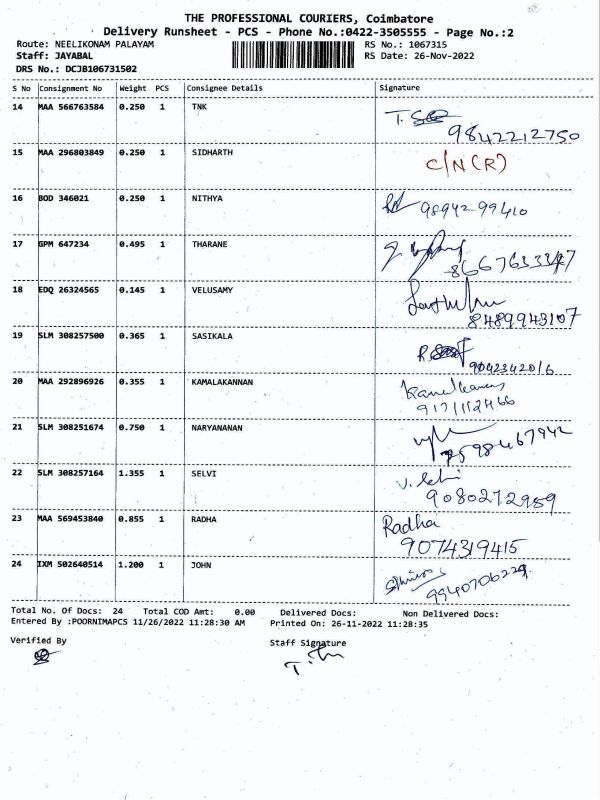 THE PROFESSIONAL COURIERS, Coimbatore
Delivery Runsheet - PCS - Phone No.:0422-3505555 - Page No.:2
Route: NEELIKONAM PALAYAM RS No.: 1067315
Staff: JAYABAL RS Date: 26-Nov-2022
DRS No.: DCJB106731502
S No Consignment No Weight PCS Consignee Details Signature
14 MAA 566763584 0.250 1 TNK T.
9842212750
15 MAA 296803849 0.250 1 SIDHARTH C/N(R)
16 BOD 346021 0.250 1 NITHYA 98942-99410
17 GPM 647234 0.495 1 THARANE
18 EDQ 26324565 0.145 1 VELUSAMY
8489943107
19 SLM 308257500 0.365 1 SASIKALA
9042342016
20 MAA 292896926 0.355 1 KAMALAKANNAN
21 SLM 308251674 0.750 1 NARYANANAN
7598467942
22 SLM 308257164 1.355 1 SELVI V. Selvi
9080272959
23 MAA 569453840 0.855 1 RADHA Radha
9074319415
24 IXM 502640514 1.200 1 JOHN
9940706229
Total No. Of Docs: 24 Total COD Amt: 0.00 Delivered Docs: Non Delivered Docs:
Entered By :POORNIMAPCS 11/26/2022 11:28:30 AM Printed On: 26-11-2022 11:28:35
Verified By Staff Signature